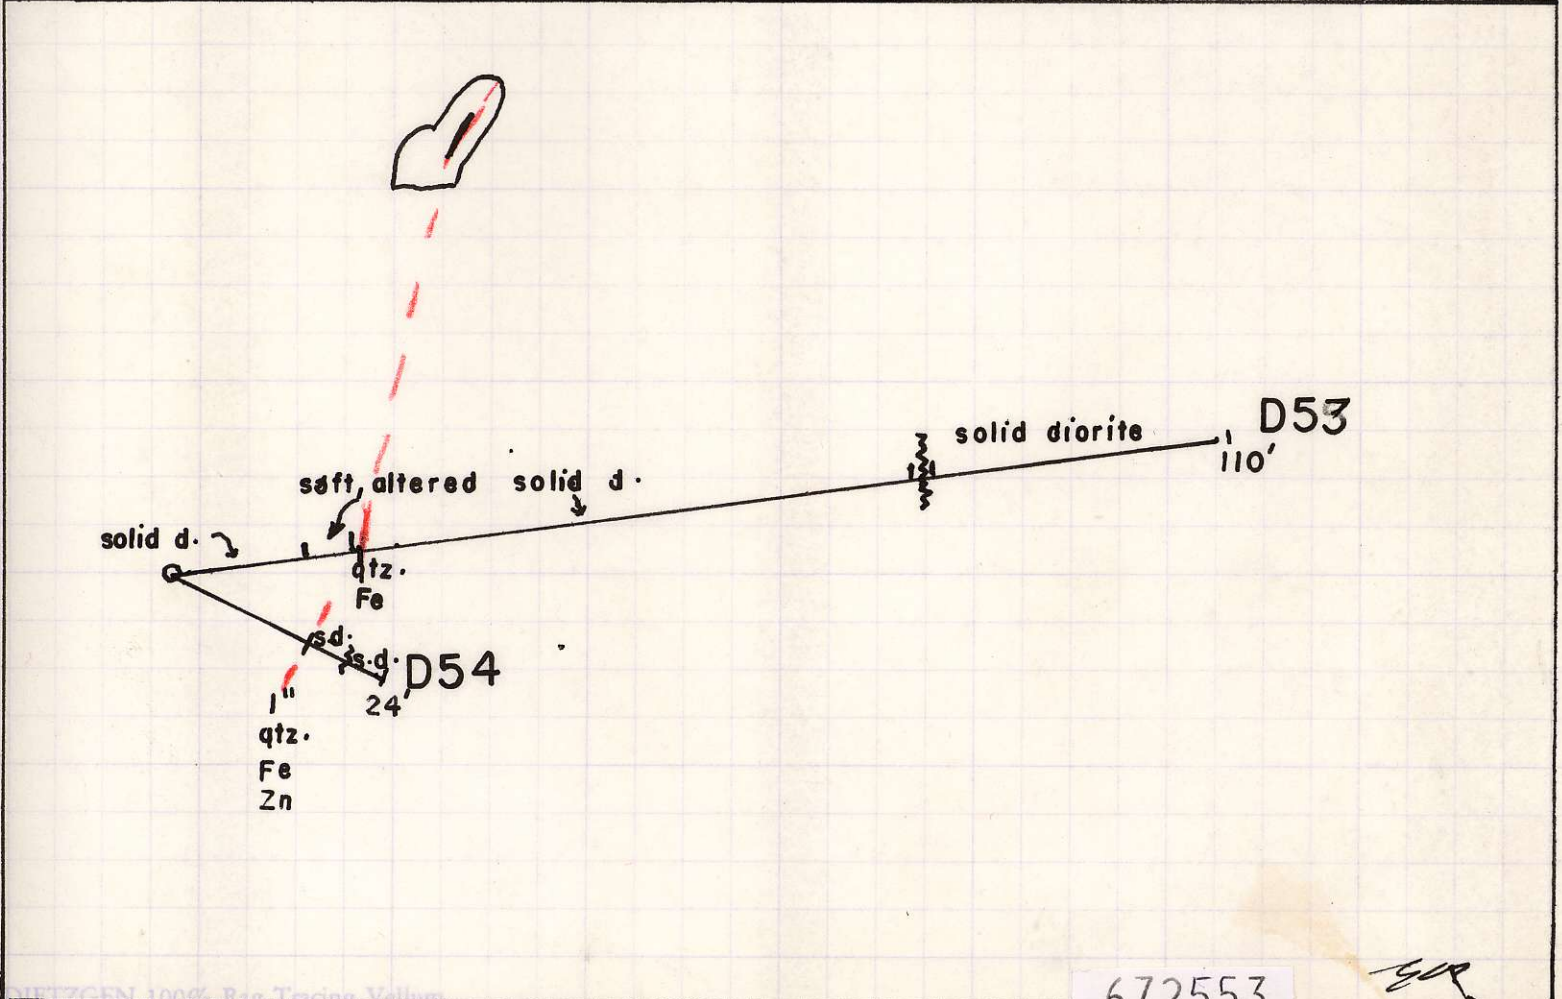 solid diorite
D53
110'
soft, altered
solid d.
solid d.
qtz.
Fe
s.d.
s.d.
D54
24'
1"
qtz.
Fe
Zn
DIETZGEN 100% Rag Tracing Vellum
672553